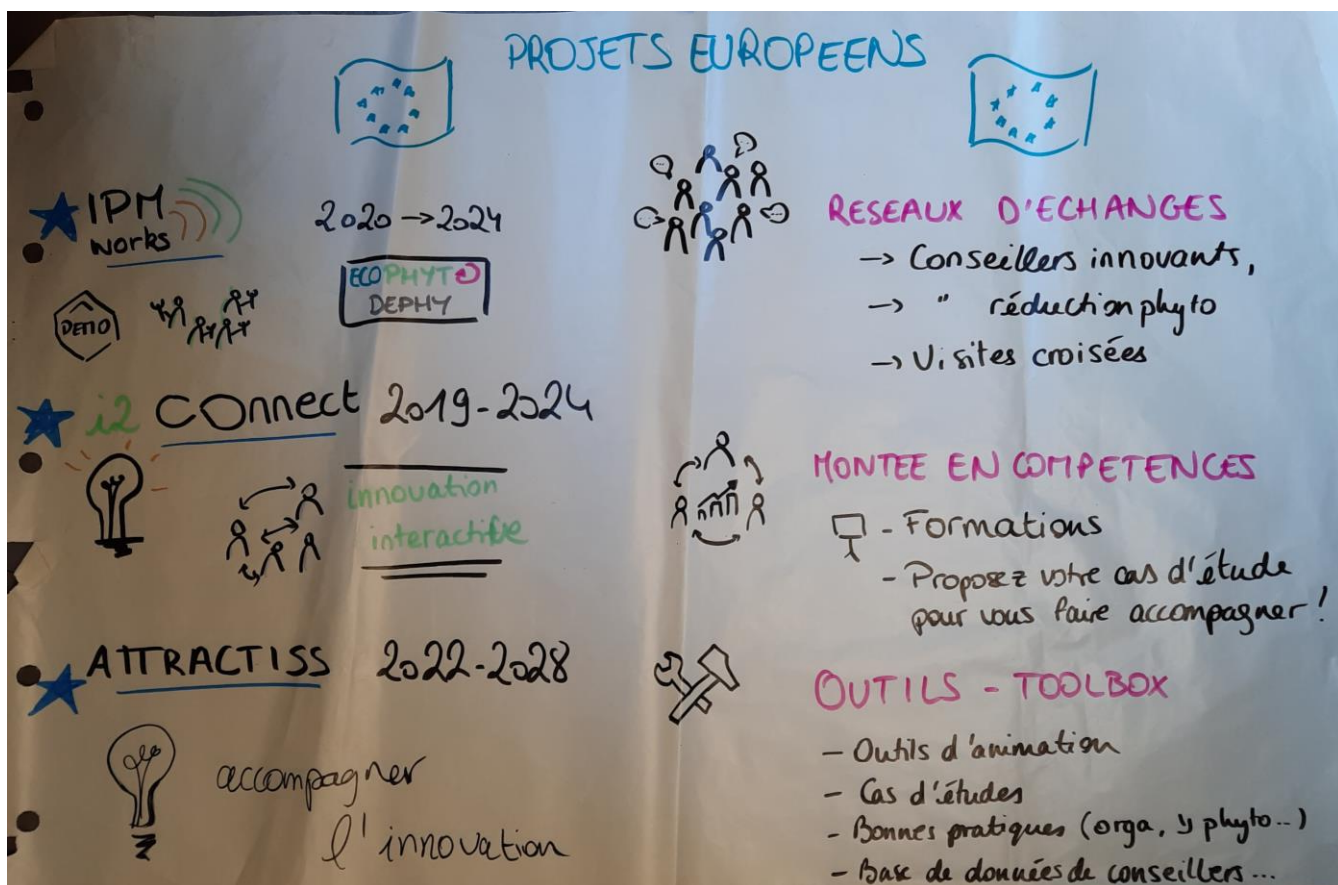 PROJETS EUROPEENS
IPM
works
2020 → 2024
ECOPHYTO
DEPHY
DEMO
i2 COnnect 2019-2024
innovation
interactive
ATTRACTISS 2022-2028
accompagner
l'innovation
RESEAUX D'ECHANGES
→ Conseillers innovants,
→ " réduction phyto
→ Visites croisées
MONTEE EN COMPETENCES
- Formations
- Proposez votre cas d'étude
pour vous faire accompagner !
OUTILS - TOOLBOX
- Outils d'animation
- Cas d'études
- Bonnes pratiques (orga, ↘ phyto...)
- Base de données de conseillers...